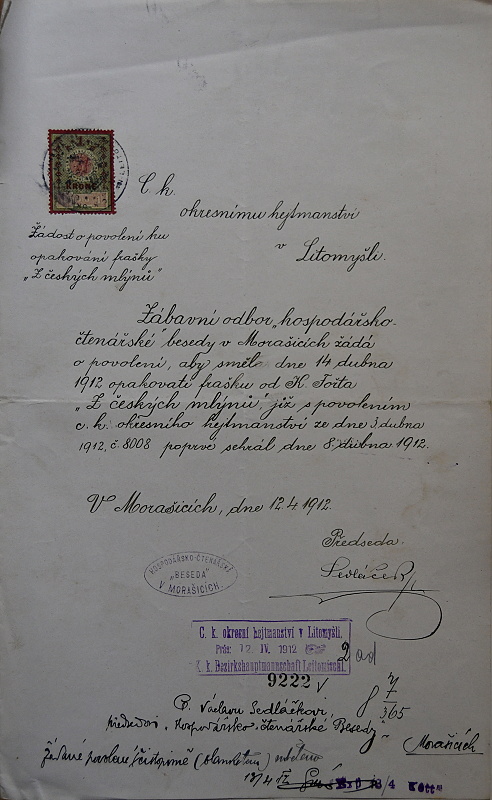 1
KRONE
C. k.
okresnímu hejtmanství
v Litomyšli.
Žádost o povolení ku
opakování frašky
„Z českých mlýnů“
Zábavní odbor „hospodářsko-
čtenářské“ besedy v Morašicích žádá
o povolení, aby směl dne 14 dubna
1912 opakovati frašku od K. Tojta
„Z českých mlýnů“, již s povolením
c. k. okresního hejtmanství ze dne 3 dubna
1912, č. 8008 poprve sehrál dne 8. dubna 1912.
V Morašicích, dne 12.4 1912.
Předseda.
Sedláček
HOSPODÁŘSKO-ČTENÁŘSKÁ
„BESEDA“
V MORAŠICÍCH.
C. k. okresní hejtmanství v Litomyšli.
Präs: 12. IV. 1912
K. k. Bezirkshauptmannschaft Leitomischl.
9222
P. Václavu Sedláčkovi,
předsedovi „Hospodářsko-čtenářské Besedy“
Morašicích
Žádané povolení uděleno